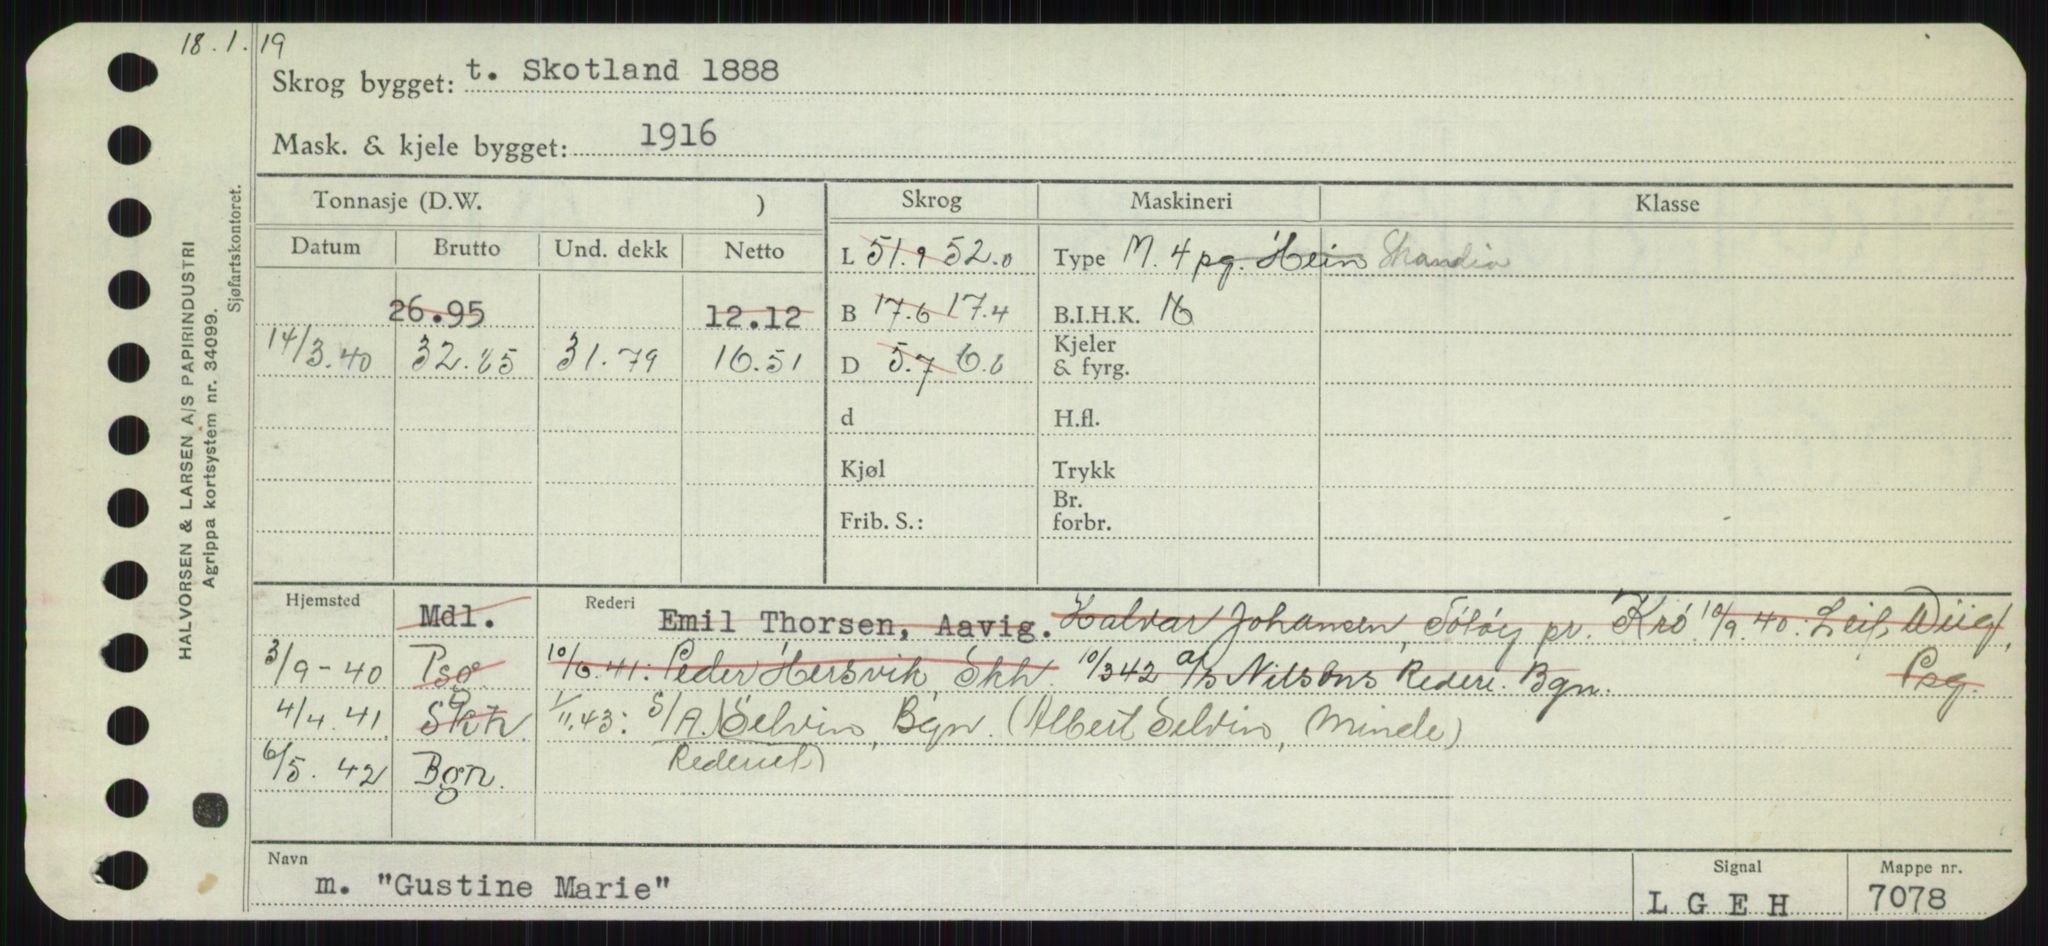 18.1.19
Skrog bygget: t. Skotland 1888
Mask. & kjele bygget: 1916
Tonnasje (D.W. ) Skrog Maskineri Klasse
Datum Brutto Und. dekk Netto L 51.9 52.0 Type M. 4 pg. Hein Skandia
26.95 12.12 B 17.6 17.4 B.I.H.K. 16
14/3.40 32.85 31.79 16.51 D 5.7 6.6 Kjeler & fyrg.
d H.fl.
Kjøl Trykk
Frib. S.: Br. forbr.
Hjemsted Mdl. Rederi Emil Thorsen, Aavig. Halvar Johansen, pr. Krö 10/9.40: Leif Wiig,
3/9-40 Psg 10/6.41: Peder Hersvik Skh. 10/3 42 A/S Nilsons Rederi. Bgn. Psg.
4/4.41. Skh 1/11.43: S/A. Selvin, Bgn. (Albert Selvin, Minde)
Rederiet
6/5.42 Bgn.
Navn Signal Mappe nr.
m. "Gustine Marie" L G E H 7078
HALVORSEN & LARSEN A/S PAPIRINDUSTRI
Agrippa kortsystem nr. 34099.
Sjøfartskontoret.